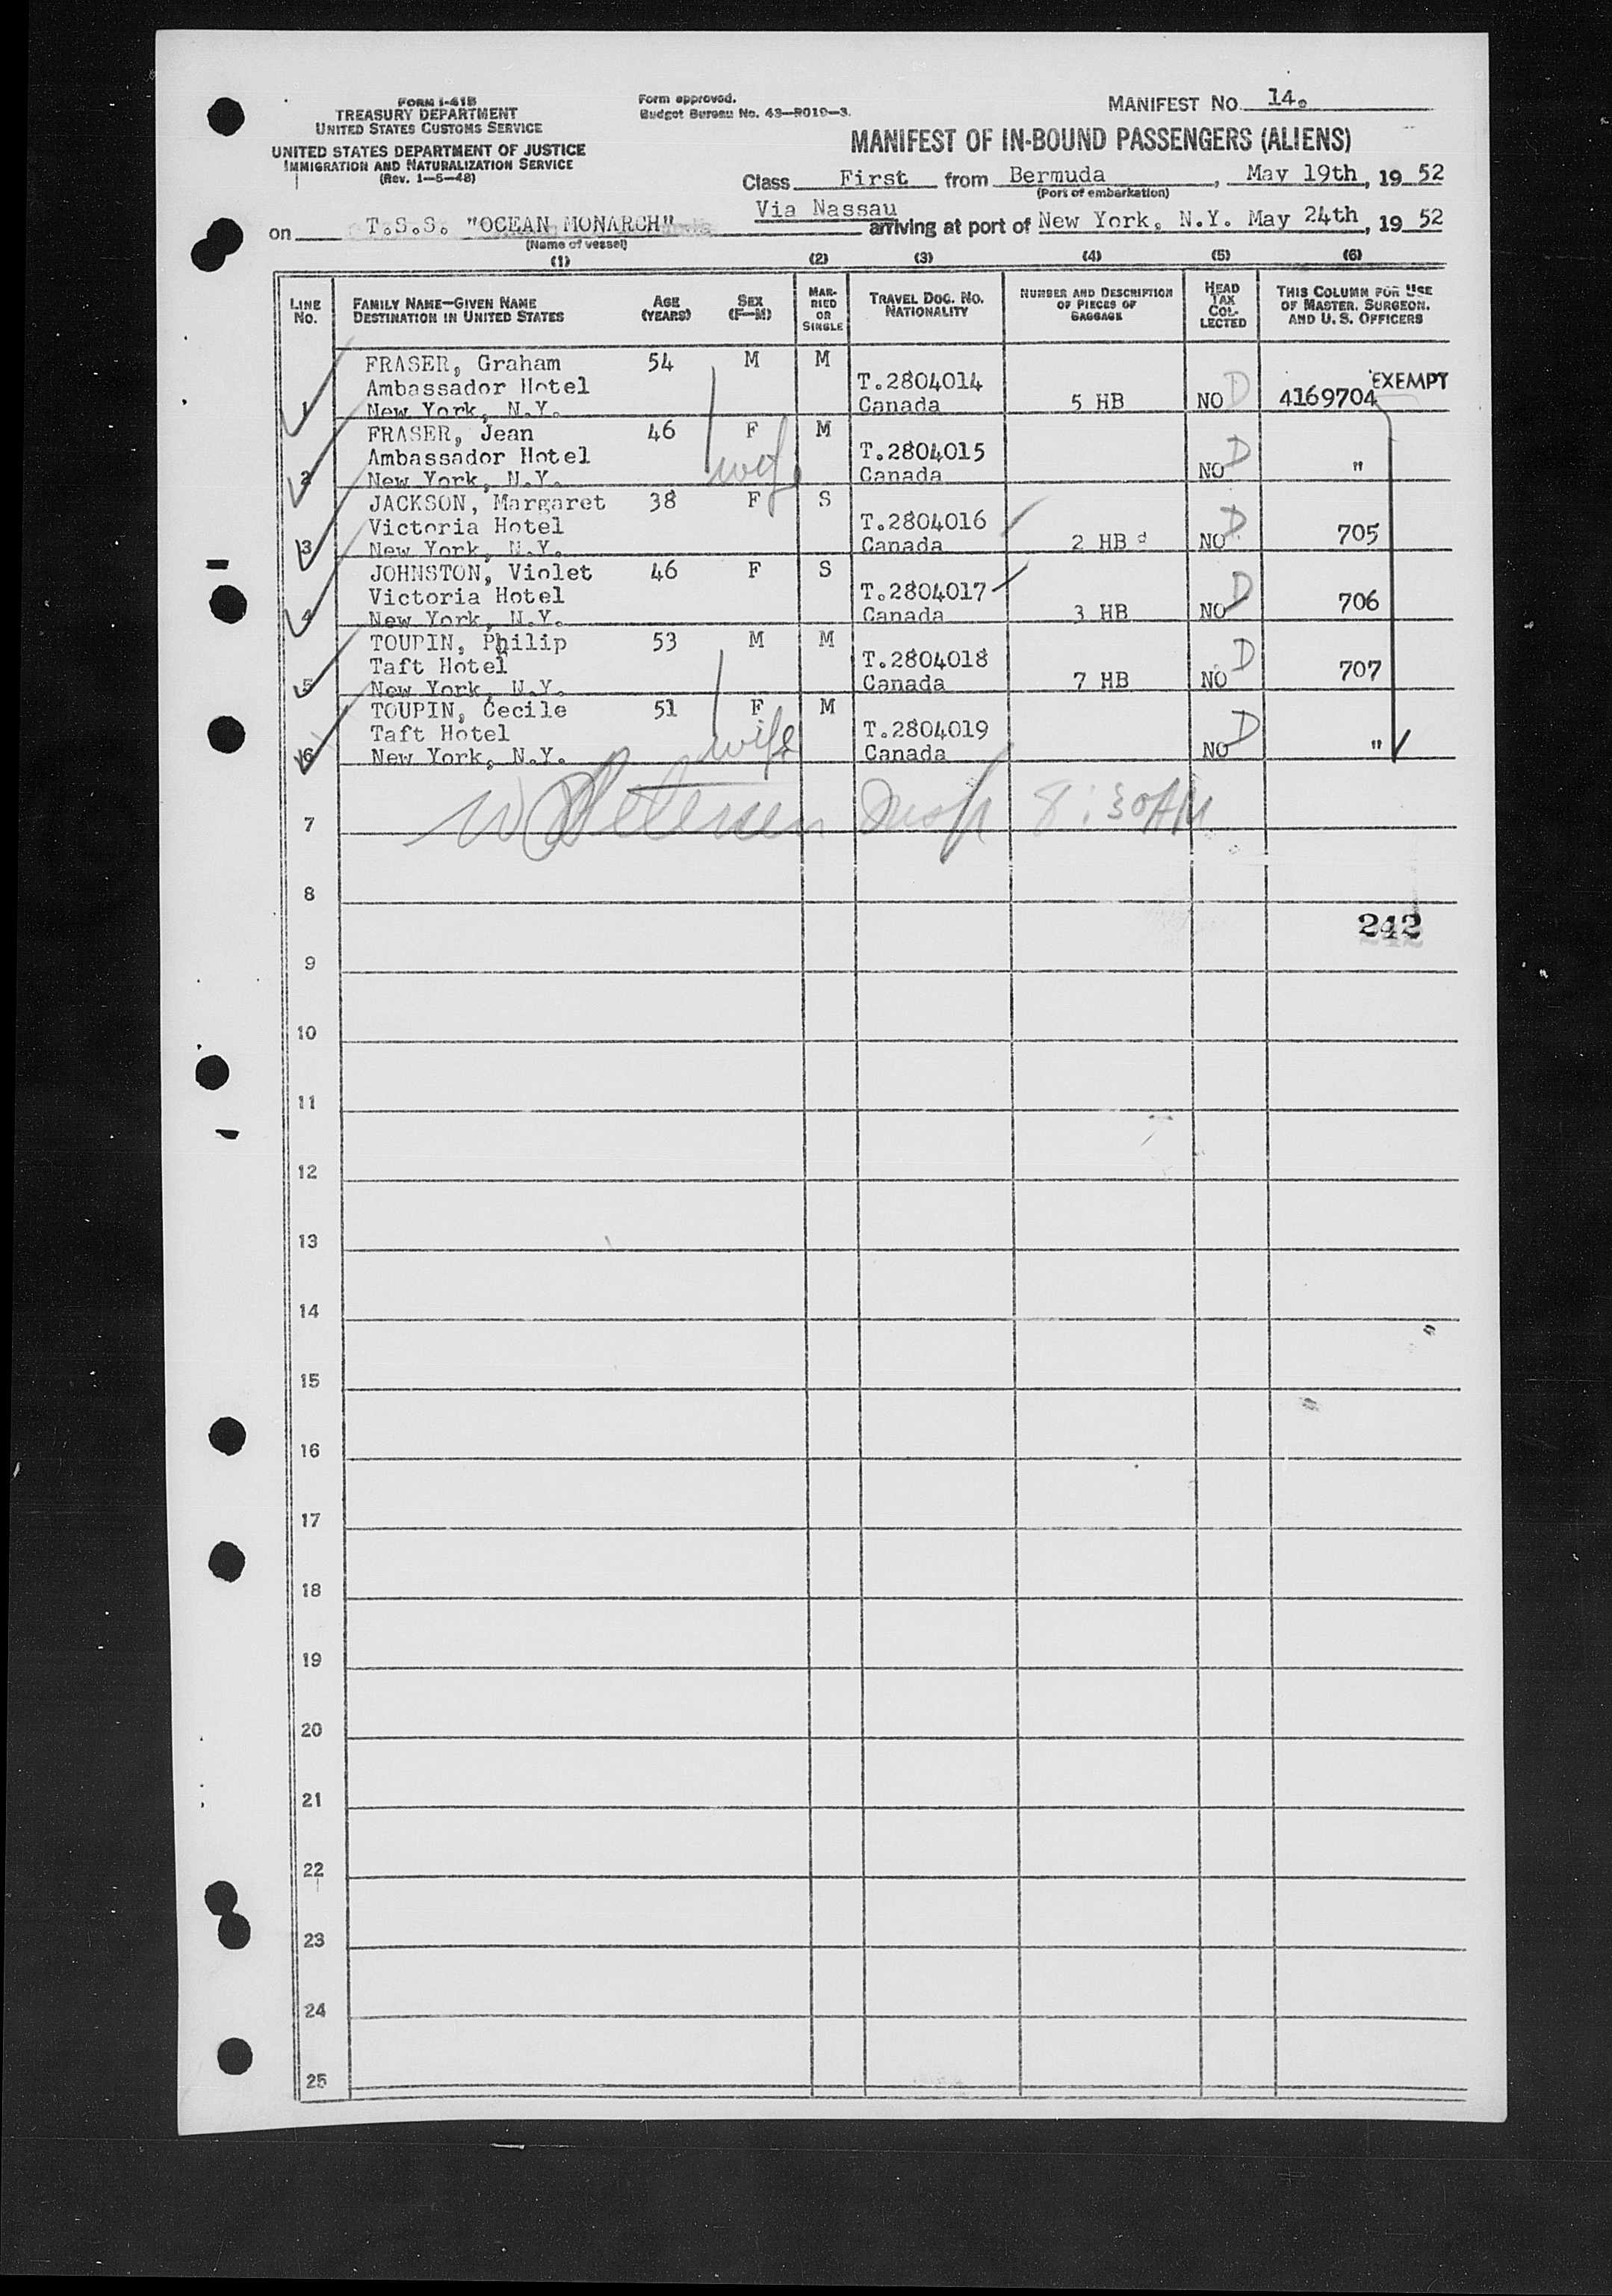 FORM I-415
TREASURY DEPARTMENT
UNITED STATES CUSTOMS SERVICE
UNITED STATES DEPARTMENT OF JUSTICE
IMMIGRATION AND NATURALIZATION SERVICE
(Rev. 1-5-48)
Form approved.
Budget Bureau No. 43-R019-3.
MANIFEST NO. 14.
MANIFEST OF IN-BOUND PASSENGERS (ALIENS)
Class First from Bermuda, May 19th, 19 52
(Port of embarkation)
Via Nassau
on T.S.S. "OCEAN MONARCH" arriving at port of New York, N.Y. May 24th, 19 52
(Name of vessel)
(1) (2) (3) (4) (5) (6)
LINE NO.
FAMILY NAME—GIVEN NAME
DESTINATION IN UNITED STATES
AGE (YEARS)
SEX (F—M)
MARRIED OR SINGLE
TRAVEL DOC. NO. NATIONALITY
NUMBER AND DESCRIPTION OF PIECES OF BAGGAGE
HEAD TAX COLLECTED
THIS COLUMN FOR USE OF MASTER, SURGEON, AND U. S. OFFICERS
FRASER, Graham 54 M M
Ambassador Hotel T.2804014 EXEMPT
1 New York, N.Y. Canada 5 HB NO D 4169704
FRASER, Jean 46 F M
Ambassador Hotel wife T.2804015
2 New York, N.Y. Canada NO D "
JACKSON, Margaret 38 F S
Victoria Hotel T.2804016
3 New York, N.Y. Canada 2 HB NO D 705
JOHNSTON, Violet 46 F S
Victoria Hotel T.2804017
4 New York, N.Y. Canada 3 HB NO D 706
TOUPIN, Philip 53 M M
Taft Hotel T.2804018
5 New York, N.Y. Canada 7 HB NO D 707
TOUPIN, Cecile 51 F M
Taft Hotel wife T.2804019
6 New York, N.Y. Canada NO D "
7 8:30AM
8
242
9
10
11
12
13
14
15
16
17
18
19
20
21
22
23
24
25